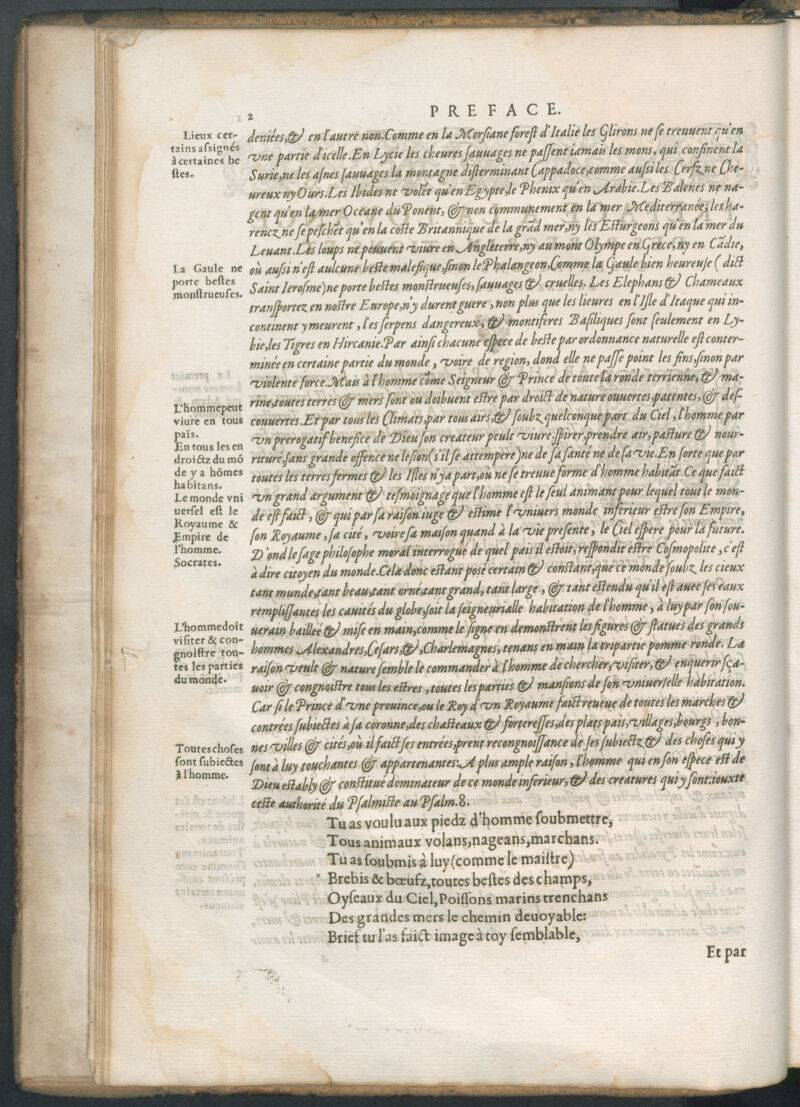 2
PREFACE.
Lieux cer-
tains assignés
à certaines be
stes.
deniées,& en l'autre non.Comme en la Morsiane forest d'Italie les Glirons ne se treuuent qu'en
vne partie d'icelle.En Lycie les cheures sauuages ne passent iamais les mons, qui confinent la
Surie,ne les asnes sauuages la montagne disterminant Cappadoce,comme aussi les Cerfz,ne Che-
ureux ny Ours.Les Ibides ne volēt qu'en Egypte,le Phenix qu'en Arabie.Les Balenes ne na-
gent qu'en la mer Oceane du Ponent, & non communement en la mer Mediterranée, les ha-
rencz ne se peschēt qu'en la coste Britannique de la grād mer,ny les Esturgeons qu'en la mer du
Leuant.Les loups ne peuuent viure en Angleterre,ny au mont Olympe en Grece,ny en Cādie,
où aussi n'est aulcune beste malefique,sinon le Phalangeon.Comme la Gaule bien heureuse ( dict
Saint Ierosme)ne porte bestes monstrueuses,sauuages & cruelles. Les Elephans & Chameaux
transportez en nostre Europe,n'y durent guere, non plus que les lieures en l'Isle d'Itaque qui in-
continent y meurent, les serpens dangereux, & montiferes Basiliques sont seulement en Ly-
bie,les Tigres en Hircanie.Par ainsi chacune espece de beste par ordonnance naturelle est conter-
minée en certaine partie du monde, voire de region, dond elle ne passe point les fins,sinon par
violente force.Mais à l'homme cōme Seigneur & Prince de toute la ronde terrienne, & ma-
rine,toutes terres & mers sont ou doibuent estre par droict de nature ouuertes,patentes, & des-
couuertes.Et par tous les Climats,par tous airs,& soubz quelconque part du Ciel, l'homme par
vn prerogatif benefice de Dieu son createur peult viure,spirer,prendre air,pasture & nour-
riture,sans grande offence ne lesion(s'il se attempere)ne de sa santé ne de sa vie.En sorte que par
toutes les terres fermes & les Isles n'y a part,où ne se treuue forme d'homme habitāt.Ce que faict
vn grand argument & tesmoignage que l'homme est le seul animant pour lequel tout le mon-
de est faict, & qui par sa raison iuge & estime l'vniuers monde inferieur estre son Empire,
son Royaume, sa cité, voire sa maison quand à la vie presente, le Ciel espere pour la future.
D'ond le sage philosophe moral interrogué de quel pais il estoit,respondit estre Cosmopolite, c'est
à dire citoyen du monde.Cela donc estant posé certain & constant,que ce monde soubz les cieux
tant munde,tant beau,tant orné,tant grand,tant large, & tant estendu qu'il est auec ses eaux
remplissantes les cauités du globe,soit la seigneurialle habitation de l'homme, à luy par son sou-
uerain bailleé & mise en main,comme le signe en demonstrent les figures & statues des grands
hommes Alexandres,Cesars,&,Charlemagnes, tenans en main la tripartie pomme ronde. La
raison veult & nature semble le commander à l'homme de chercher,visiter, & enquerir sça-
uoir & congnoistre tous les estres, toutes les parties & mansions de son vniuerselle habitation.
Car si le Prince d'vne prouince,ou le Roy d'vn Royaume faict reueue de toutes les marches &
contrées subiectes à sa coronne,des chasteaux & forteresses,des plats pais,villages,bourgs, bon-
nes villes & cités,où il faict ses entrées,prent recongnoissance de ses subiectz & des choses qui y
sont à luy touchantes & appartenantes. A plus ample raison, l'homme qui en son espece est de
Dieu estably & constitué dominateur de ce monde inferieur, & des creatures qui y sont:iouxte
ceste authorité du Psalmiste au Psalm.8.
La Gaule ne
porte bestes
monstrueuses.
L'homme peut
viure en tous
pais.
En tous les en
droictz du mō
de y a hōmes
habitans.
Le monde vni
uersel est le
Royaume &
Empire de
l'homme.
Socrates.
L'homme doit
visiter & con-
gnoistre tou-
tes les parties
du monde.
Toutes choses
sont subiectes
à l'homme.
Tu as voulu aux piedz d'homme soubmettre,
Tous animaux volans,nageans,marchans.
Tu as soubmis à luy(comme le maistre)
Brebis & bœufz,toutes bestes des champs,
Oyseaux du Ciel,Poissons marins trenchans
Des grandes mers le chemin deuoyable:
Brief tu l'as faict image à toy semblable,
Et par